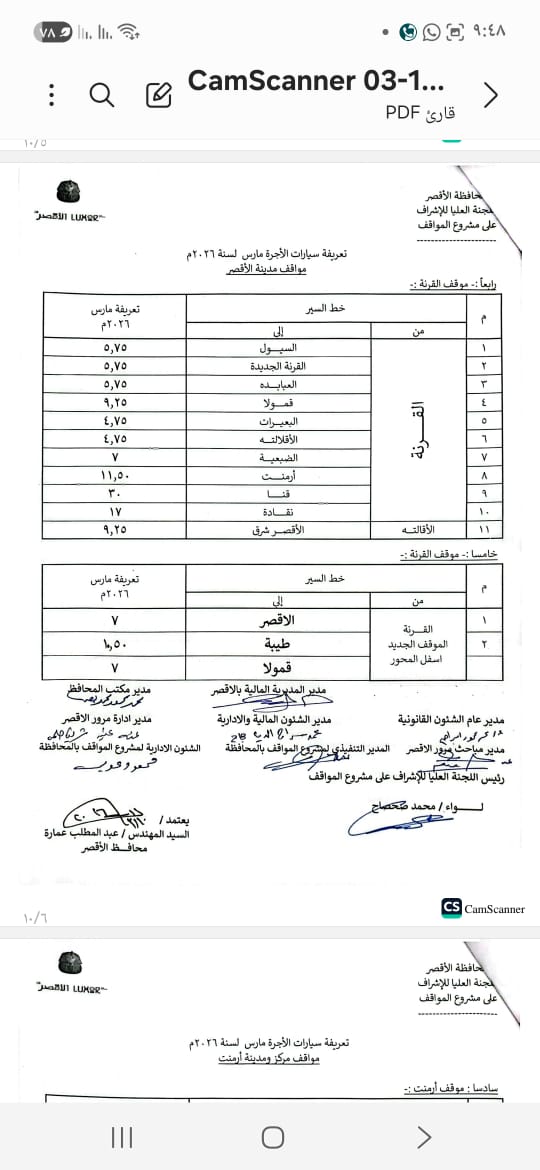 ٩:٤٨
٧٨
CamScanner 03-1...
قارئ PDF
١٠/٥
محافظة الأقصر
اللجنة العليا للإشراف
على مشروع المواقف
LUXOR الأقصر
تعريفة سيارات الأجرة مارس لسنة ٢٠٢٦م
مواقف مدينة الأقصر
رابعاً :- موقف القرنة :-
م خط السير تعريفة مارس ٢٠٢٦م
من إلى
القرنة
١ السيول ٥,٧٥
٢ القرنة الجديدة ٥,٧٥
٣ العبابده ٥,٧٥
٤ قمولا ٩,٢٥
٥ البعيرات ٤,٧٥
٦ الأقالتة ٤,٧٥
٧ الضبعية ٧
٨ أرمنت ١١,٥٠
٩ قنا ٣٠
١٠ نقادة ١٧
١١ الأقالته الأقصر شرق ٩,٢٥
خامسا :- موقف القرنة :-
م خط السير تعريفة مارس ٢٠٢٦م
من إلى
القرنة
الموقف الجديد
اسفل المحور
١ الاقصر ٧
٢ طيبة ١٠,٥٠
قمولا ٧
مدير المديرية المالية بالاقصر مدير مكتب المحافظ
مدير عام الشئون القانونية مدير الشئون المالية والادارية مدير ادارة مرور الاقصر
مدير مباحث مرور الاقصر المدير التنفيذي لمشروع المواقف بالمحافظة الشئون الادارية لمشروع المواقف بالمحافظة
رئيس اللجنة العليا للإشراف على مشروع المواقف
لواء / محمد صحصاح
يعتمد /
السيد المهندس / عبد المطلب عمارة
محافظ الأقصر
CS CamScanner
١٠/٦
محافظة الأقصر
اللجنة العليا للإشراف
على مشروع المواقف
LUXOR الأقصر
تعريفة سيارات الأجرة مارس لسنة ٢٠٢٦م
مواقف مركز ومدينة أرمنت
سادسا : موقف أرمنت :-